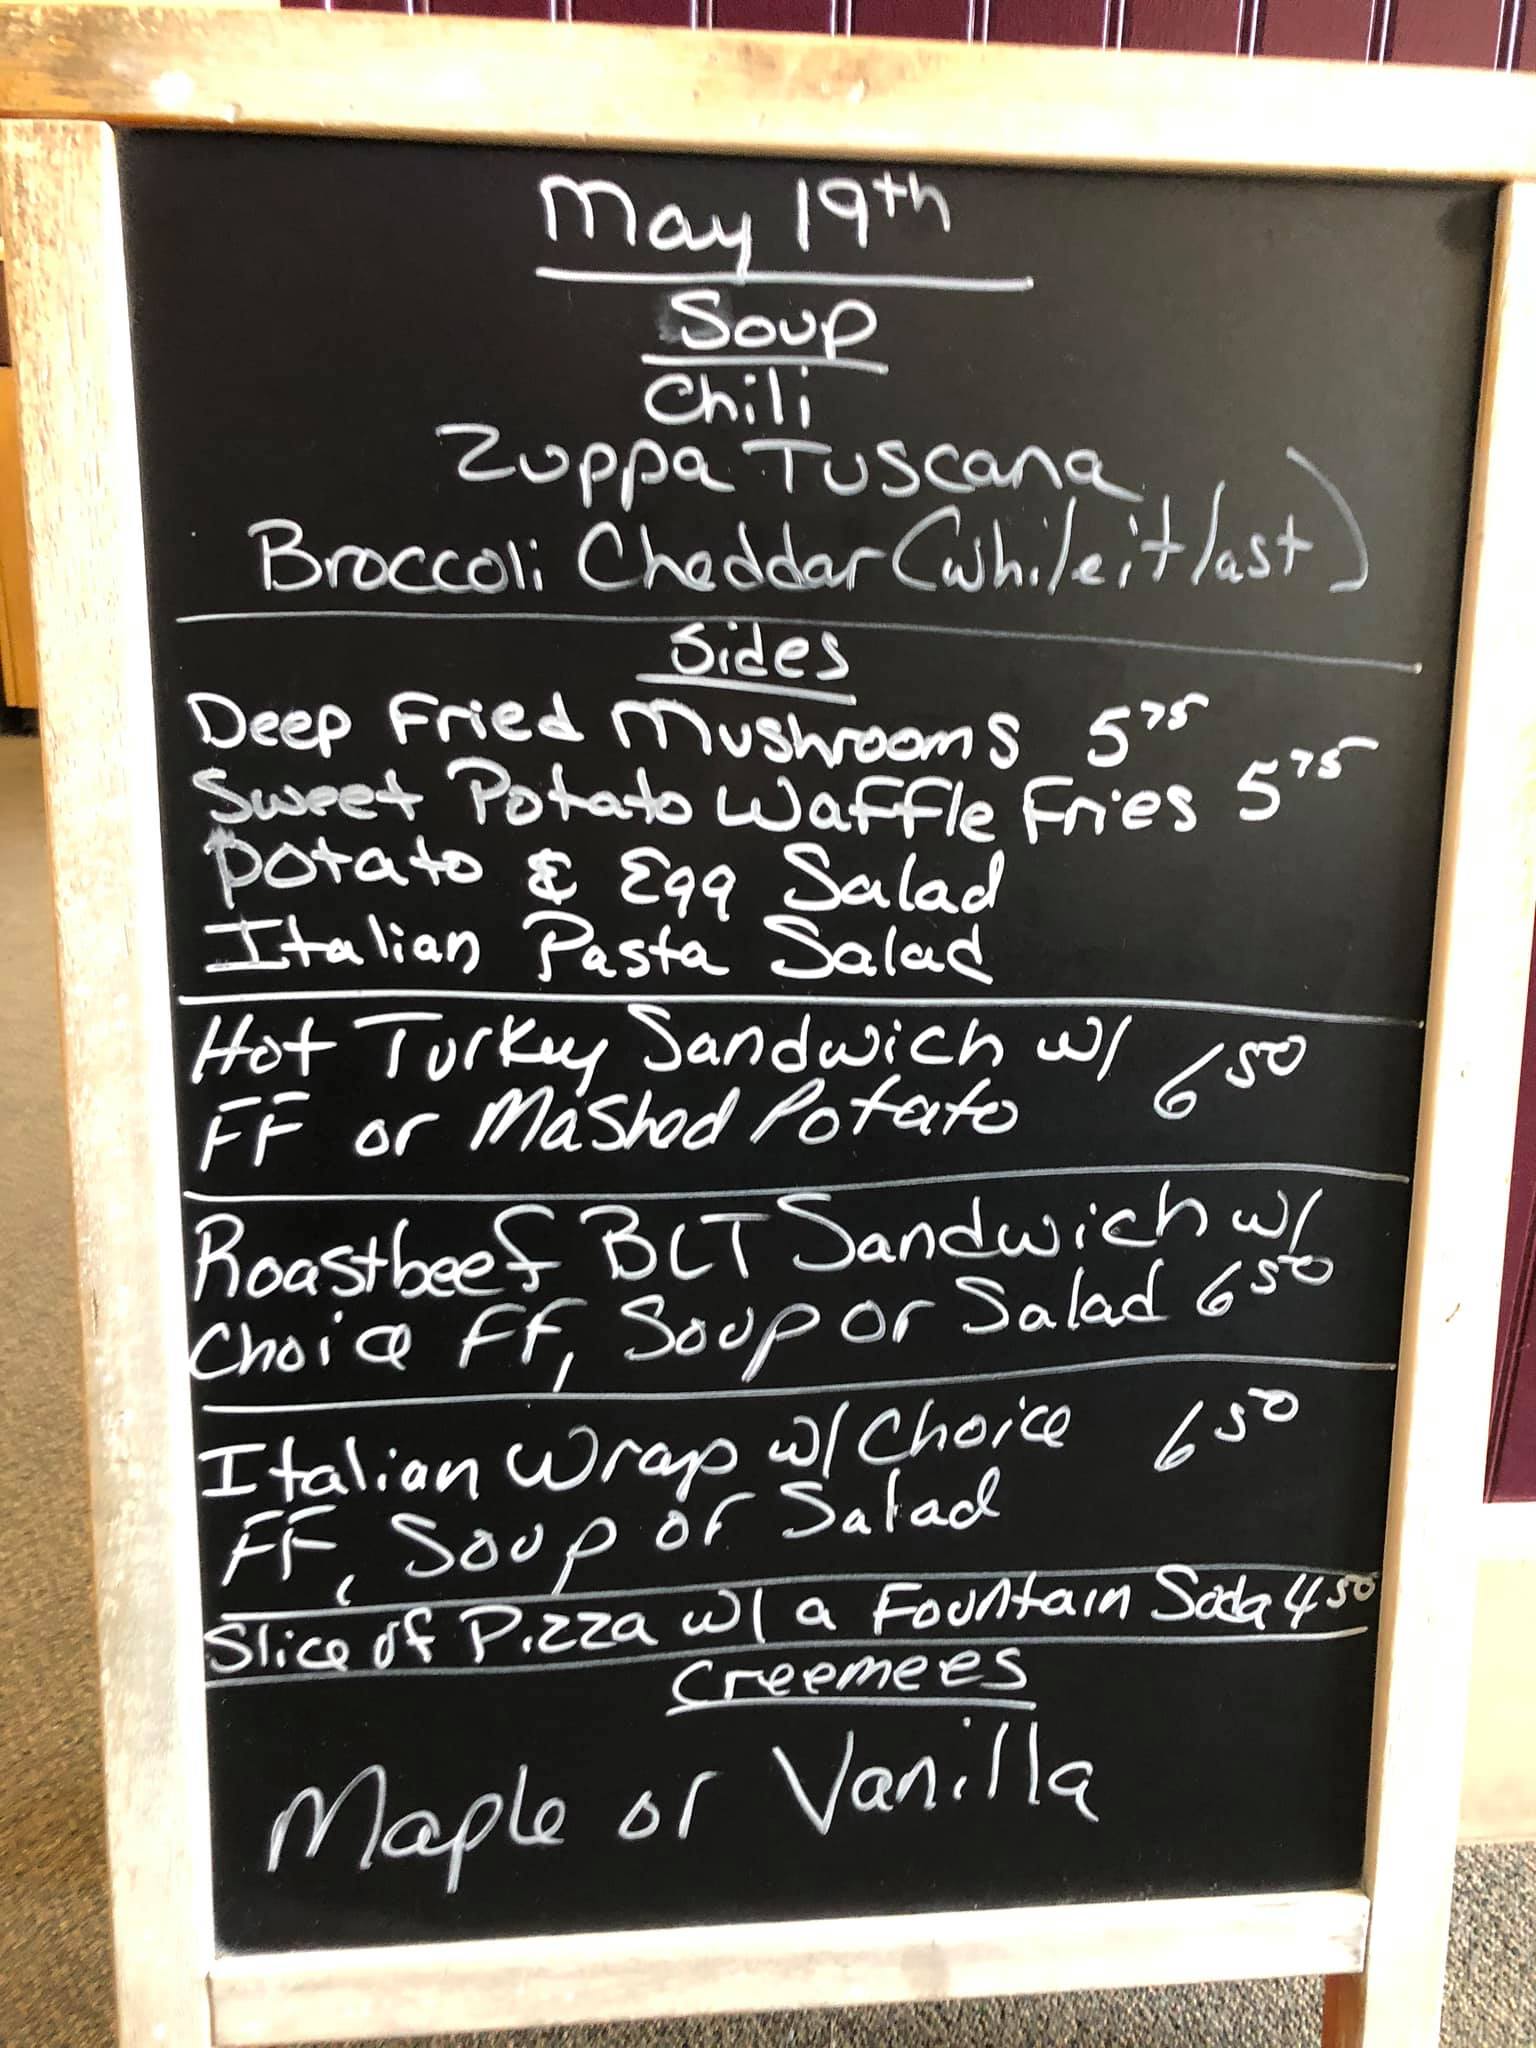 May 19th
Soup
Chili
Zuppa Tuscana
Broccoli Cheddar (while it last)
Sides
Deep Fried Mushrooms 5 75
Sweet Potato Waffle Fries 5 75
Potato & Egg Salad
Italian Pasta Salad
Hot Turkey Sandwich w/
FF or Mashed Potato 6 50
Roastbeef BLT Sandwich w/
Choice FF, Soup or Salad 6 50
Italian Wrap w/ Choice 6 50
FF, Soup or Salad
Slice of Pizza w/ a Fountain Soda 4 50
Creemees
Maple or Vanilla